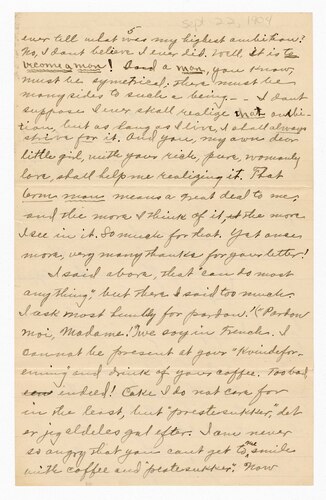 Sept. 22, 1909
5
ever tell what was my highest ambition?
No, I dont believe I ever did. Well it is to
become a man! And a man, you know,
must be symetrical, there must be
many sides to such a being. -- I dont
suppose I ever shall realize that ambi-
tion, but as long as I live, I shall always
strive for it. And you, my own dear
little girl, with your rich, pure, womanly
love, shall help me realizing it. That
term man means a great deal to me,
and the more I think of it, the more
I see in it. So much for that. Yet once
more, very many thanks for your letter!
I said above, that "can do most
anything," but there I said too much.
I ask most humbly for pardon! "Pardon
moi, Madame!" we say in French. I
cannot be present at your "Kvindefor-
ening and drink of your coffee. Too bad,
indeed! Cake I do not care for
in the least, but "prestesukker," det
er jeg aldeles gal efter. I am never
so angry that you cant get me to smile
with coffee and "prestesukker". Now